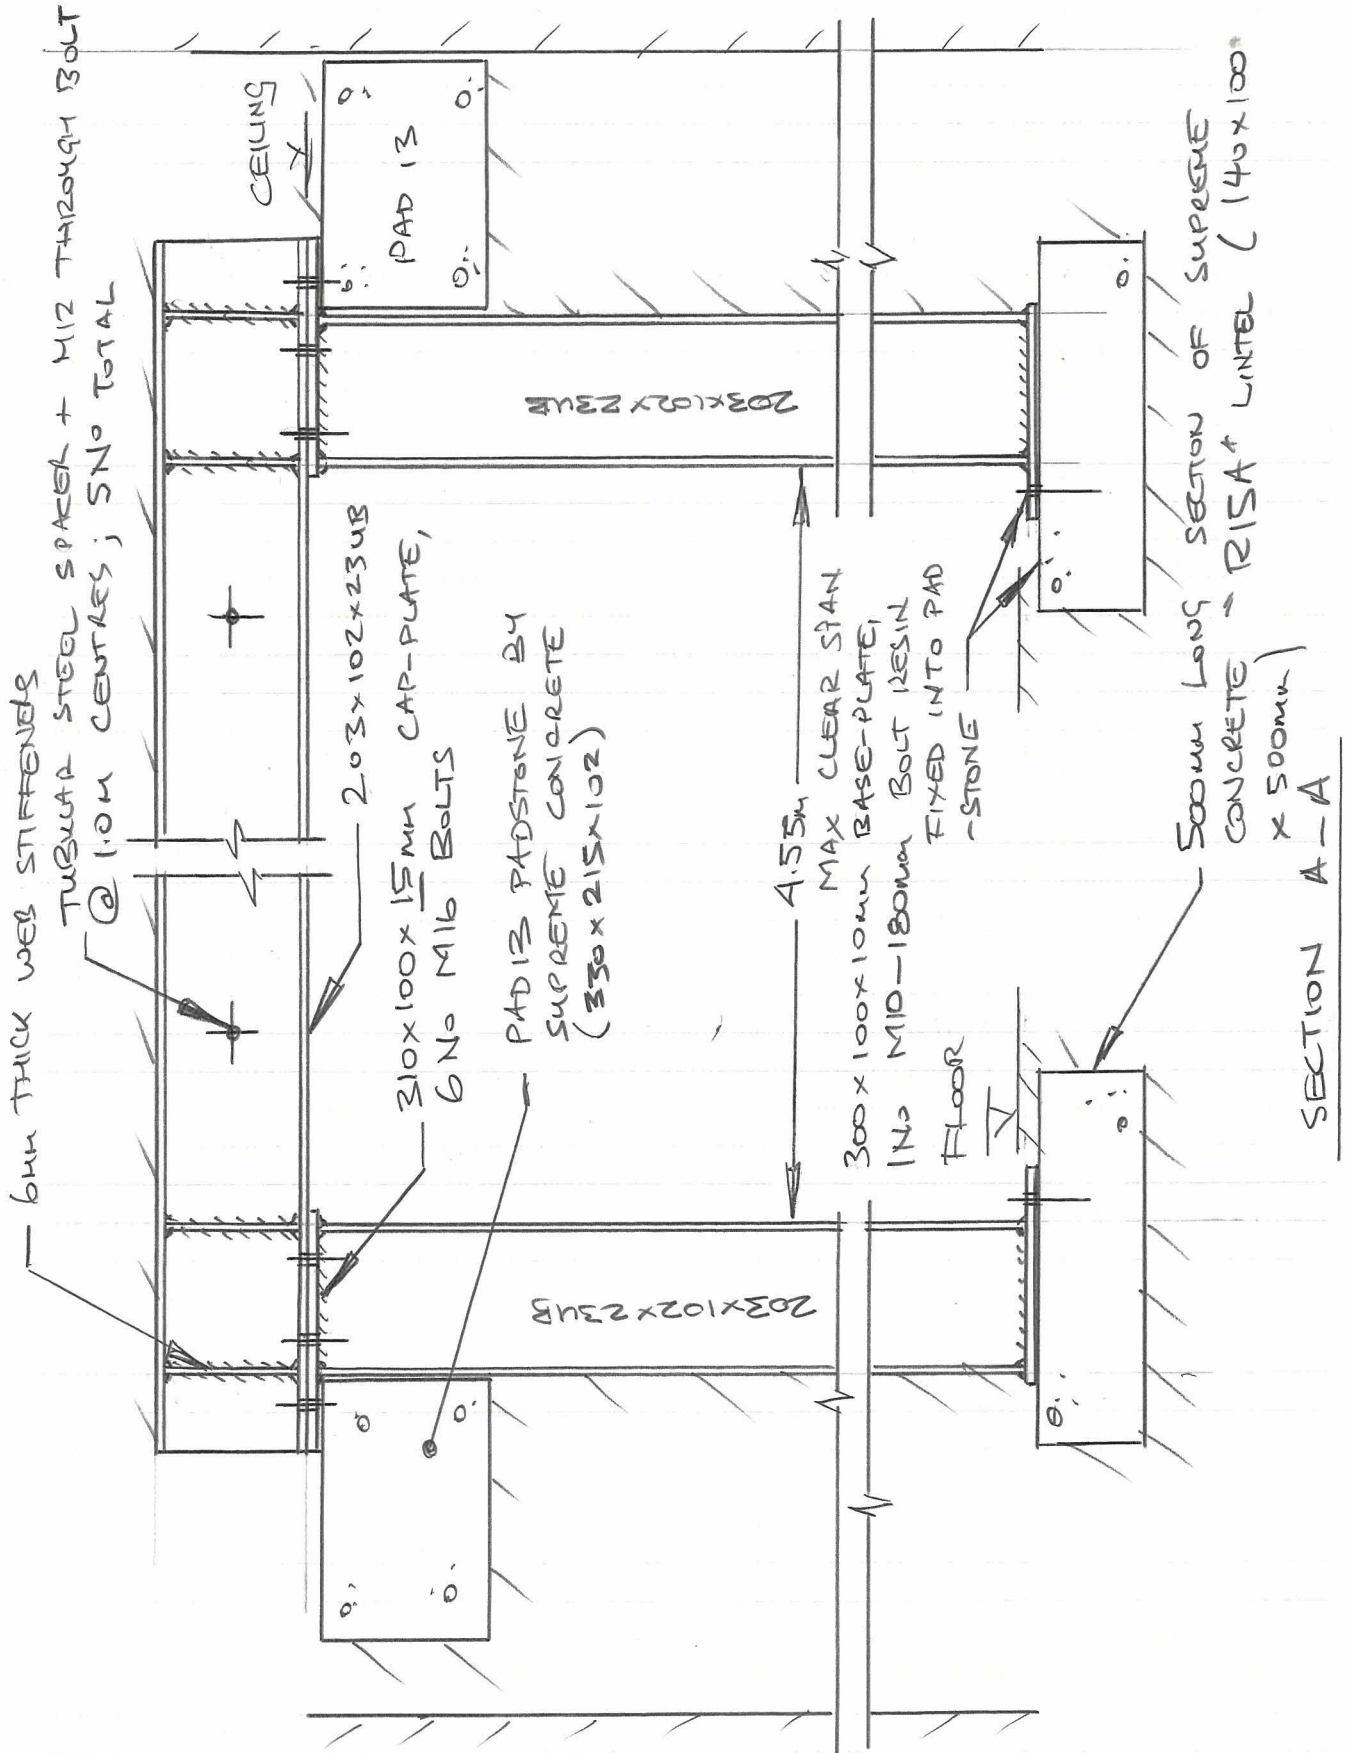 6mm THICK WEB STIFFENERS
TUBULAR STEEL SPACER + M12 THROUGH BOLT
@ 1.0m CENTRES; 5 No TOTAL
CEILING
PAD 13
203x102x23UB
310x100x15mm CAP-PLATE,
6 No M16 BOLTS
PAD13 PADSTONE BY
SUPREME CONCRETE
(330x215x102)
203x102x23UB
203x102x23UB
4.55m
MAX CLEAR SPAN
300x100x10mm BASE-PLATE,
1No M10-180mm BOLT RESIN
FIXED INTO PAD
-STONE
FLOOR
500mm LONG SECTION OF SUPREME
CONCRETE - R15A* LINTEL (140x100
x 500mm)
SECTION A-A